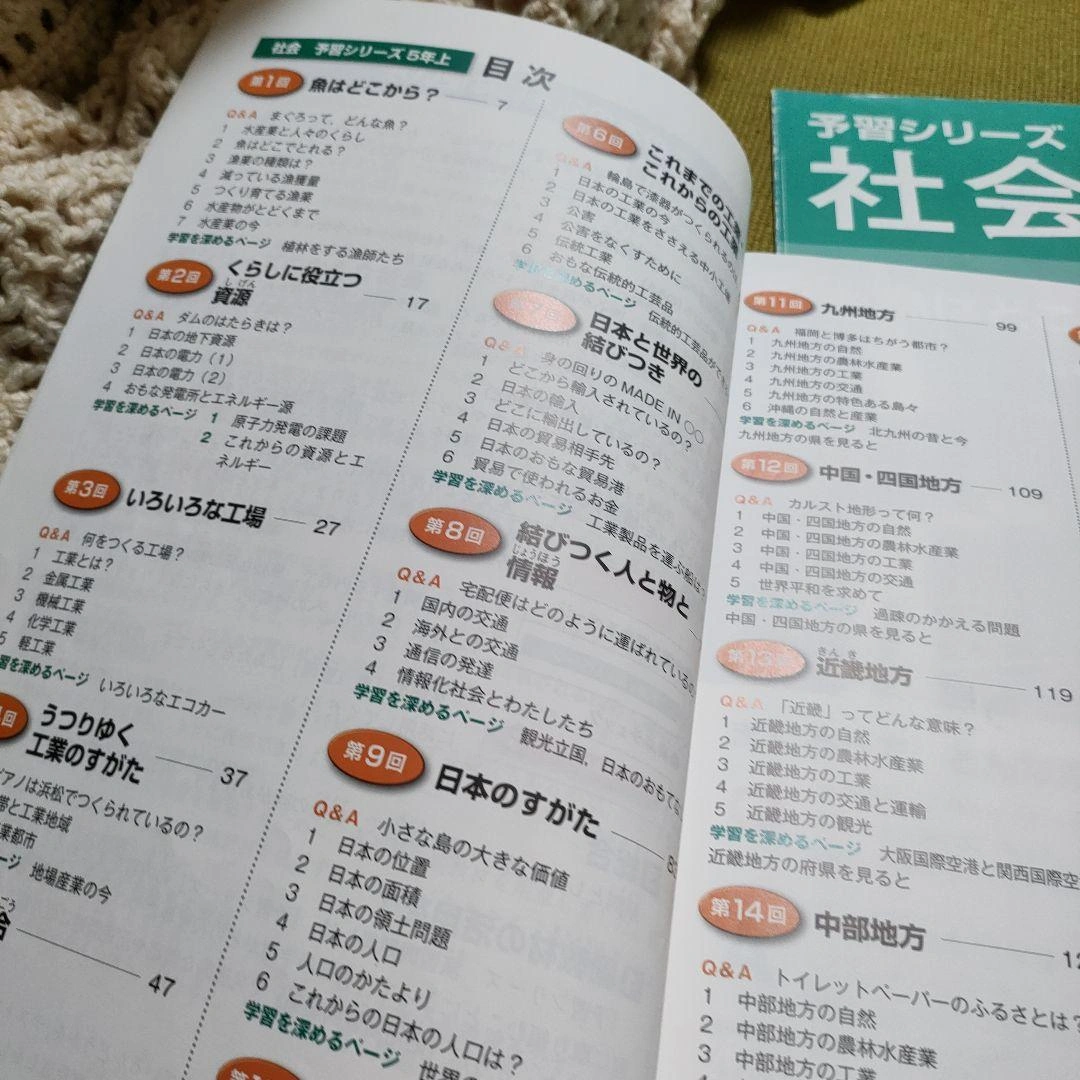 社会 予習シリーズ5年上
目次
第1回 魚はどこから? 7
Q&A まぐろって、どんな魚?
1 水産業と人々のくらし
2 魚はどこでとれる?
3 漁業の種類は?
4 減っている漁獲量
5 つくり育てる漁業
6 水産物がとどくまで
7 水産業の今
学習を深めるページ 植林をする漁師たち
第2回 くらしに役立つ
しげん
資源 17
Q&A ダムのはたらきは?
1 日本の地下資源
2 日本の電力(1)
3 日本の電力(2)
4 おもな発電所とエネルギー源
学習を深めるページ 1 原子力発電の課題
2 これからの資源とエ
ネルギー
第3回 いろいろな工場 27
Q&A 何をつくる工場?
1 工業とは?
2 金属工業
3 機械工業
4 化学工業
5 軽工業
学習を深めるページ いろいろなエコカー
回 うつりゆく
工業のすがた 37
アノは浜松でつくられているの?
帯と工業地域
業都市
ージ 地場産業の今
47
第6回 これまでの工
これからの工業
Q&A 輪島で漆器がつくられるの
1 日本の工業の今
2 日本の工業をささえる中小工場
3 公害
4 公害をなくすために
5 伝統工業
6 おもな伝統的工芸品
学習を深めるページ 伝統的工芸品が
第7回 日本と世界の
結びつき
Q&A 身の回りの MADE IN ○○
1 どこから輸入されているの?
2 日本の輸入
3 どこに輸出しているの?
4 日本の貿易相手先
5 日本のおもな貿易港
6 貿易で使われるお金
学習を深めるページ 工業製品を運ぶ船は
第8回 結びつく人と物と
じょうほう
情報
Q&A 宅配便はどのように運ばれているの
1 国内の交通
2 海外との交通
3 通信の発達
4 情報化社会とわたしたち
学習を深めるページ 観光立国、日本のおもて
第9回 日本のすがた
Q&A 小さな島の大きな価値
1 日本の位置
2 日本の面積
3 日本の領土問題
4 日本の人口
5 人口のかたより
6 これからの日本の人口は?
学習を深めるページ 世界の
予習シリーズ
社会
第11回 九州地方 99
Q&A 福岡と博多はちがう都市?
1 九州地方の自然
2 九州地方の農林水産業
3 九州地方の工業
4 九州地方の交通
5 九州地方の特色ある島々
6 沖縄の自然と産業
学習を深めるページ 北九州の昔と今
九州地方の県を見ると
第12回 中国・四国地方 109
Q&A カルスト地形って何?
1 中国・四国地方の自然
2 中国・四国地方の農林水産業
3 中国・四国地方の工業
4 中国・四国地方の交通
5 世界平和を求めて
学習を深めるページ 過疎のかかえる問題
中国・四国地方の県を見ると
きんき
第13回 近畿地方 119
Q&A 「近畿」ってどんな意味?
1 近畿地方の自然
2 近畿地方の農林水産業
3 近畿地方の工業
4 近畿地方の交通と運輸
5 近畿地方の観光
学習を深めるページ 大阪国際空港と関西国際空
近畿地方の府県を見ると
第14回 中部地方
Q&A トイレットペーパーのふるさとは?
1 中部地方の自然
2 中部地方の農林水産業
3 中部地方の工業